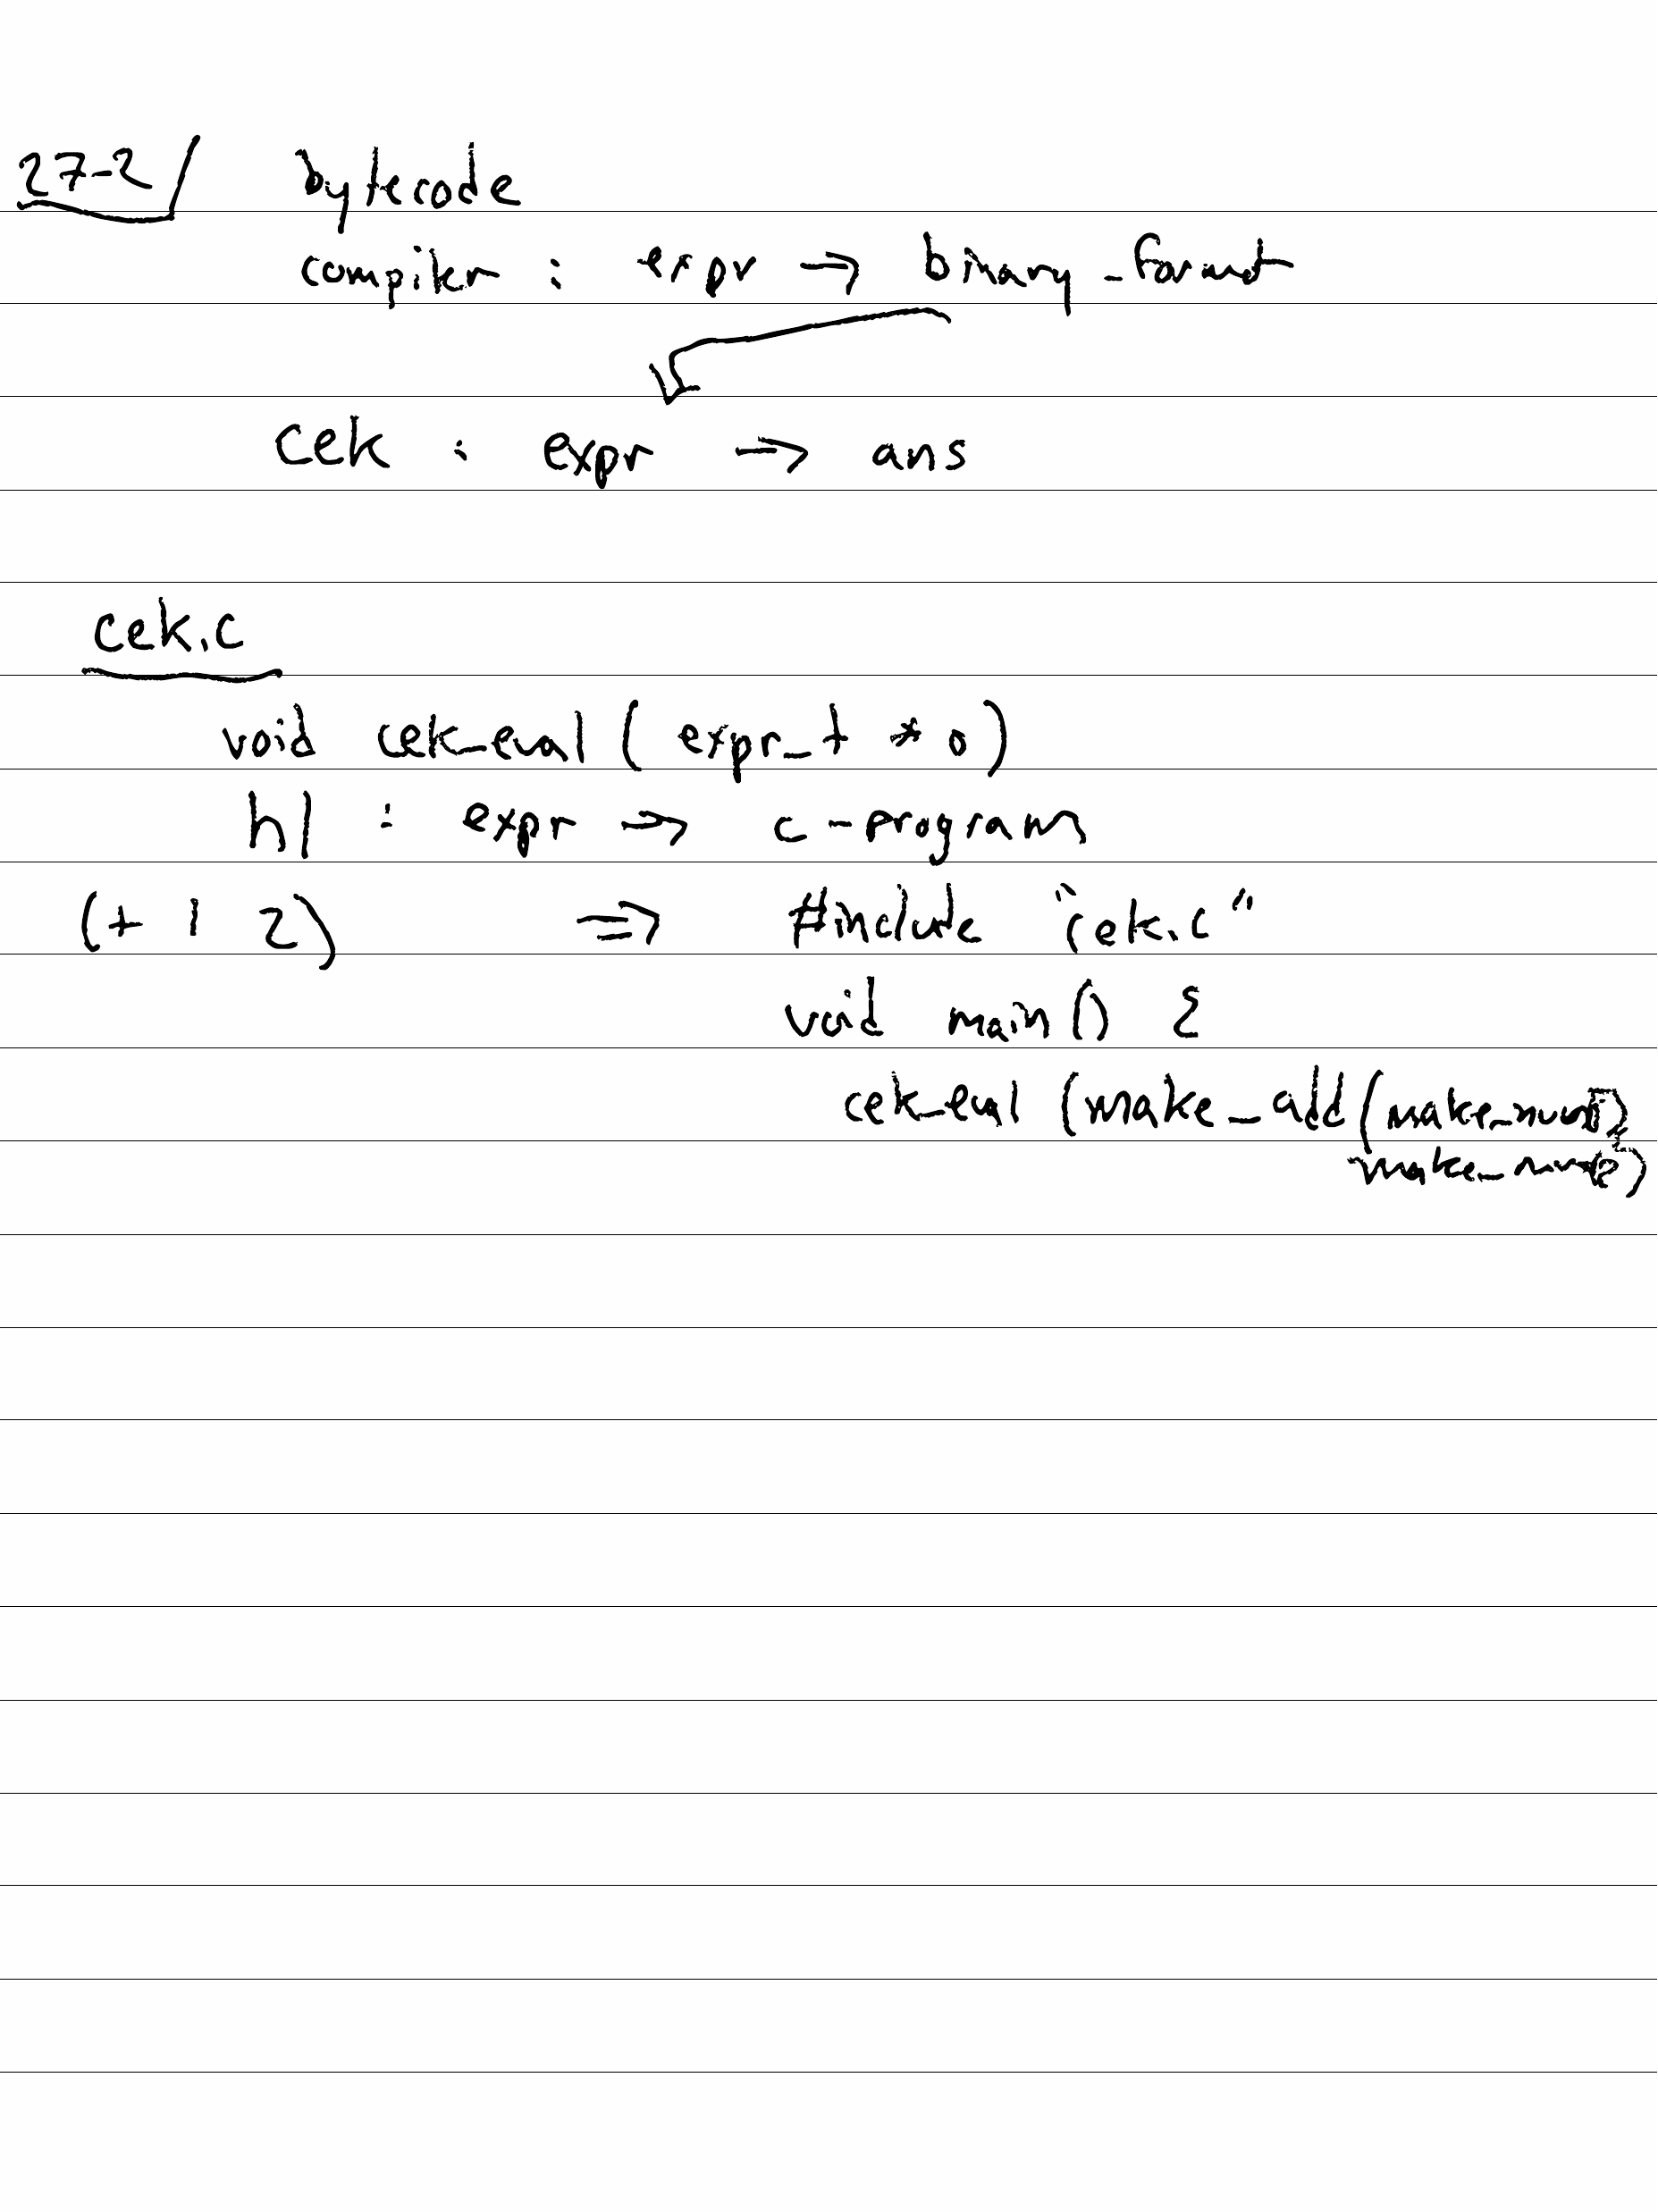 27-2/ bytecode
compiler : expr → binary_format
cek : expr → ans
cek.c
void cek_eval ( expr_t * o )
hl : expr → c-program
(+ 1 2) ⇒ #include "cek.c"
void main () {
cek_eval (make_add (make_num(1),
make_num(2))